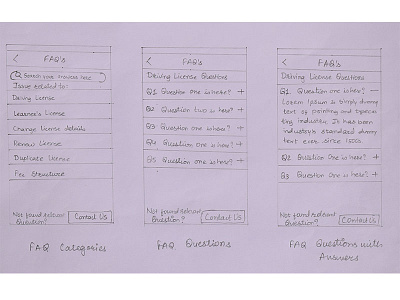 < FAQ's
Search your answers here
Issue related to:
Driving License
Learner's License
Change License details
Renew License
Duplicate License
Fee Structure
Not found relevant
Question?
Contact Us
FAQ Categories
< FAQ's
Driving License Questions
Q1 Question One is here? +
Q2 Question two is here? +
Q3 Question one is here? +
Q4 Question One is here? +
Q5 Question one is here? +
Not found relevant
Question?
Contact Us
FAQ Questions
< FAQ's
Driving License Questions
Q1 Question one is here? —
Lorem Ipsum is simply dummy
text of printing and typeset
ting industry. It has been
industry's standard dummy
text ever since 1500s.
Q2 Question One is here? +
Q3 Question One is here? +
Not found relevant
Question?
Contact Us
FAQ Questions with
Answers